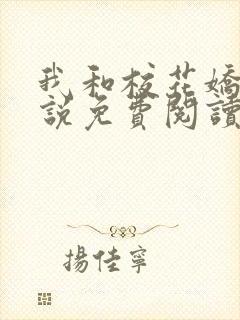 我和校花嬌
說免費閱讀
揚佳寧